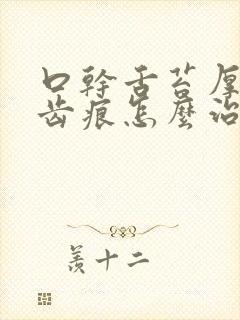 口幹舌苔厚
齿痕怎麼治
羨十二